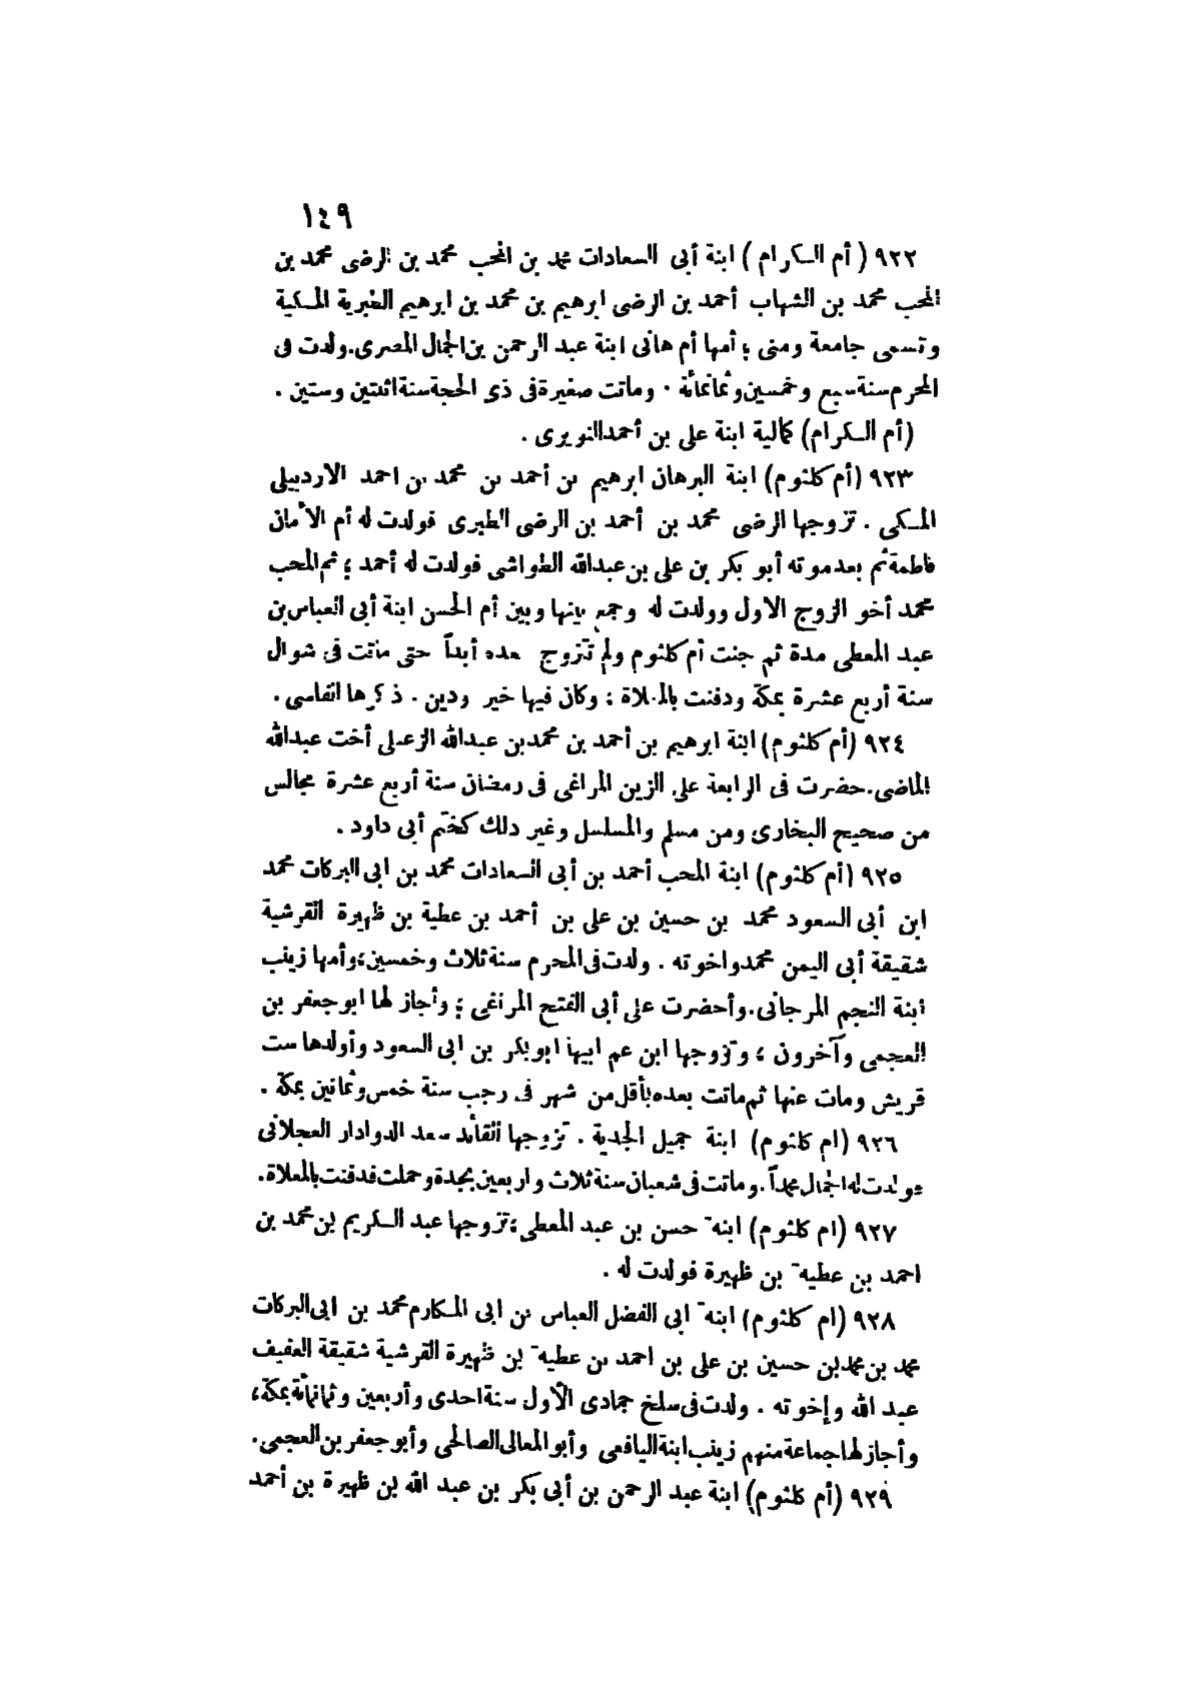 ١٤٩
٩٢٢ (أم الكرام) ابنة أبى السعادات محمد بن المحب محمد بن الرضى محمد بن
المحب محمد بن الشهاب أحمد بن الرضى ابرهيم بن محمد بن ابرهيم الطبرية المكية
وتسمى جامعة ومنى ؛ أمها أم هانى ابنة عبد الرحمن بن الجمال المصرى. ولدت فى
المحرم سنة سبع وخمسين وثمانمائة . وماتت صغيرة فى ذى الحجة سنة اثنتين وستين .
(أم الكرام) كمالية ابنة على بن أحمد النويرى .
٩٢٣ (أم كلثوم) ابنة البرهان ابرهيم بن أحمد بن محمد بن احمد الاردبيلى
المكى . تزوجها الرضى محمد بن أحمد بن الرضى الطبرى فولدت له أم الأمان
فاطمة ثم بعد موته أبو بكر بن على بن عبدالله الطواشى فولدت له أحمد ؛ ثم المحب
محمد أخو الزوج الاول وولدت له وجمع بينها وبين أم الحسن ابنة أبى العباس بن
عبد المعطى مدة ثم جنت أم كلثوم ولم تتزوج بعده أبداً حتى ماتت فى شوال
سنة أربع عشرة بمكة ودفنت بالمعلاة ؛ وكان فيها خير ودين . ذكرها الفاسى .
٩٢٤ (أم كلثوم) ابنة ابرهيم بن أحمد بن محمد بن عبدالله الزعلى أخت عبدالله
الماضى. حضرت فى الرابعة على الزين المراغى فى رمضان سنة أربع عشرة مجالس
من صحيح البخارى ومن مسلم والمسلسل وغير ذلك كختم أبى داود .
٩٢٥ (أم كلثوم) ابنة المحب أحمد بن أبى السعادات محمد بن ابى البركات محمد
ابن أبى السعود محمد بن حسين بن على بن أحمد بن عطية بن ظهيرة القرشية
شقيقة أبى اليمن محمد واخوته . ولدت فى المحرم سنة ثلاث وخمسين ؛ وأمها زينب
ابنة النجم المرجانى. وأحضرت على أبى الفتح المراغى ؛ وأجاز لها ابو جعفر بن
العجمى وآخرون ؛ وتزوجها ابن عم ابيها ابو بكر بن ابى السعود وأولدها ست
قريش ومات عنها ثم ماتت بعده بأقل من شهر فى رجب سنة خمس وثمانين بمكة .
٩٢٦ (ام كلثوم) ابنة جميل الجدية . تزوجها القائد سعد الدوادار العجلانى
فولدت له الجمال محمداً. وماتت فى شعبان سنة ثلاث واربعين بجدة وحملت فدفنت بالمعلاة.
٩٢٧ (ام كلثوم) ابنة حسن بن عبد المعطى ؛ تزوجها عبد الكريم بن محمد بن
احمد بن عطية بن ظهيرة فولدت له .
٩٢٨ (ام كلثوم) ابنة ابى الفضل العباس بن ابى المكارم محمد بن ابى البركات
محمد بن محمد بن حسين بن على بن احمد بن عطية بن ظهيرة القرشية شقيقة العفيف
عبد الله وإخوته . ولدت فى سلخ جمادى الأول سنة احدى وأربعين وثمانمائة بمكة ؛
وأجاز لها جماعة منهم زينب ابنة اليافعى وأبو المعالى الصالحى وأبو جعفر بن العجمى.
٩٢٩ (أم كلثوم) ابنة عبد الرحمن بن أبى بكر بن عبد الله بن ظهيرة بن أحمد